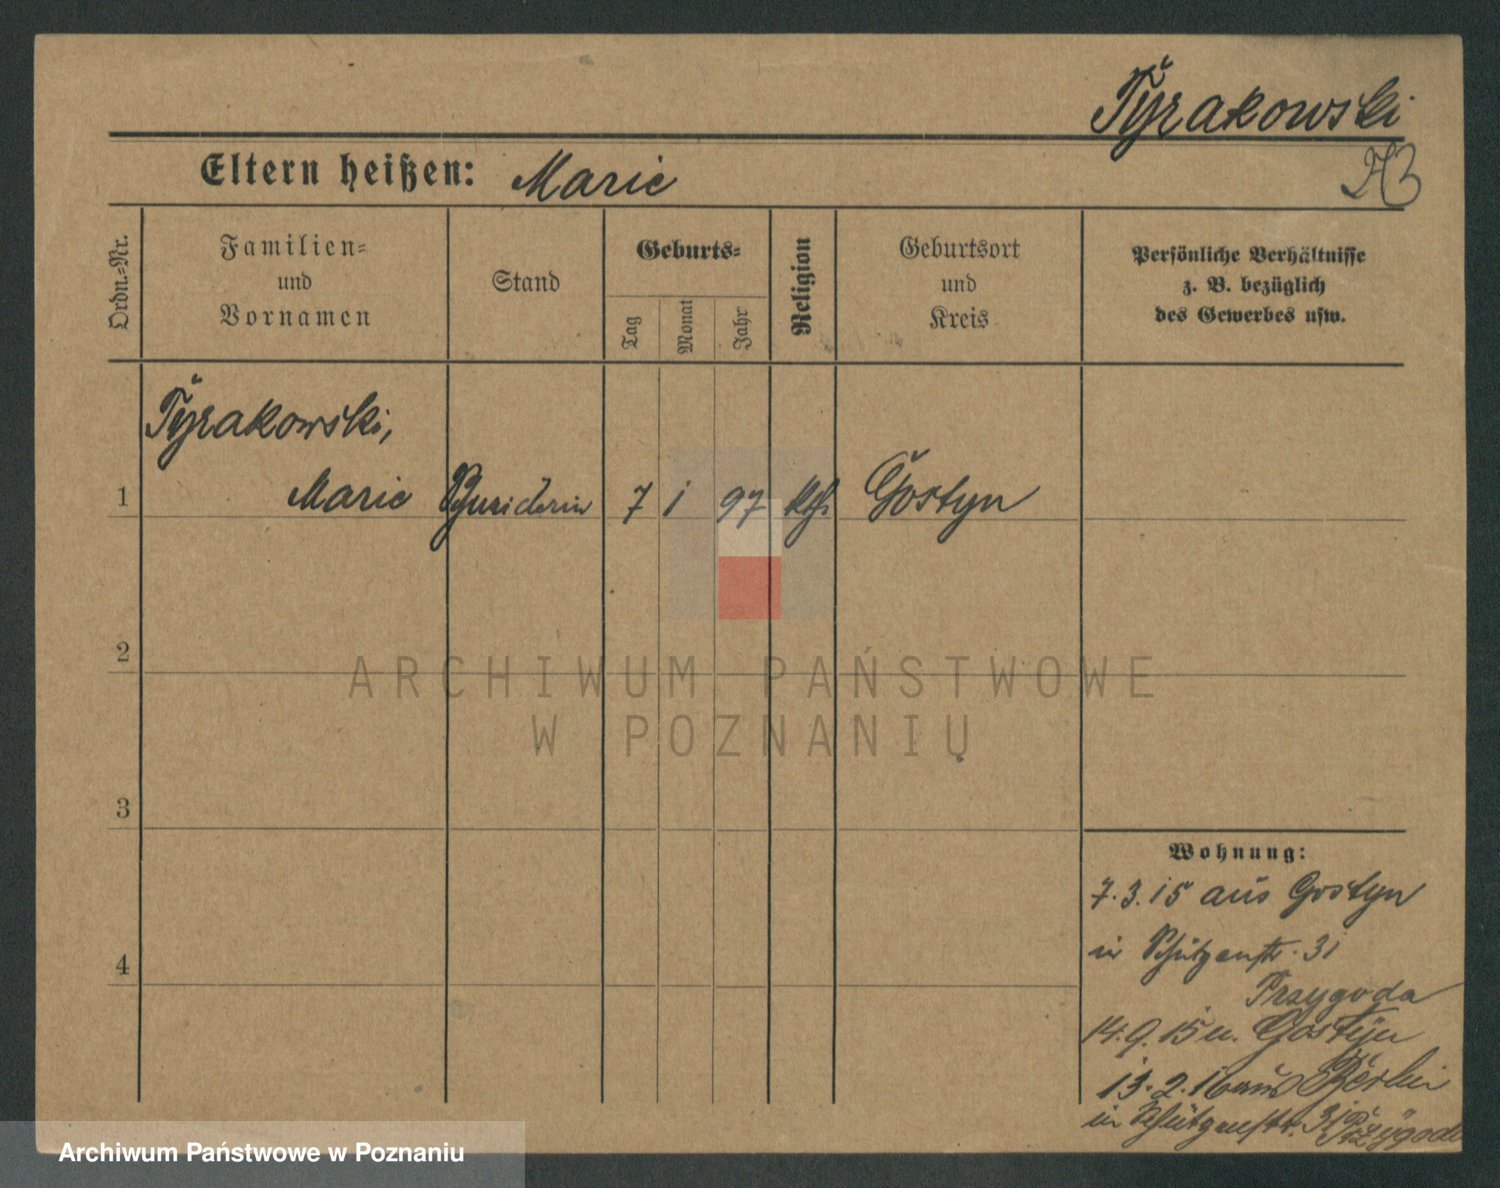 Tyrakowski
Eltern heißen: Marie
Ordn.-Nr.
Familien-
und
Vornamen
Stand
Geburts-
Tag
Monat
Jahr
Religion
Geburtsort
und
Kreis
Persönliche Verhältnisse
z. B. bezüglich
des Gewerbes usw.
Tyrakowski,
1 Marie Schneiderin 7 1 97 kth. Gostyn
2
3
4
ARCHIWUM PAŃSTWOWE
W POZNANIU
Wohnung:
7.3.15 aus Gostyn
in Schützenstr. 31
Przygoda
14.9.15 n. Gostyn
13.2.16 aus Berlin
in Schützenstr. 31 Przygoda
Archiwum Państwowe w Poznaniu